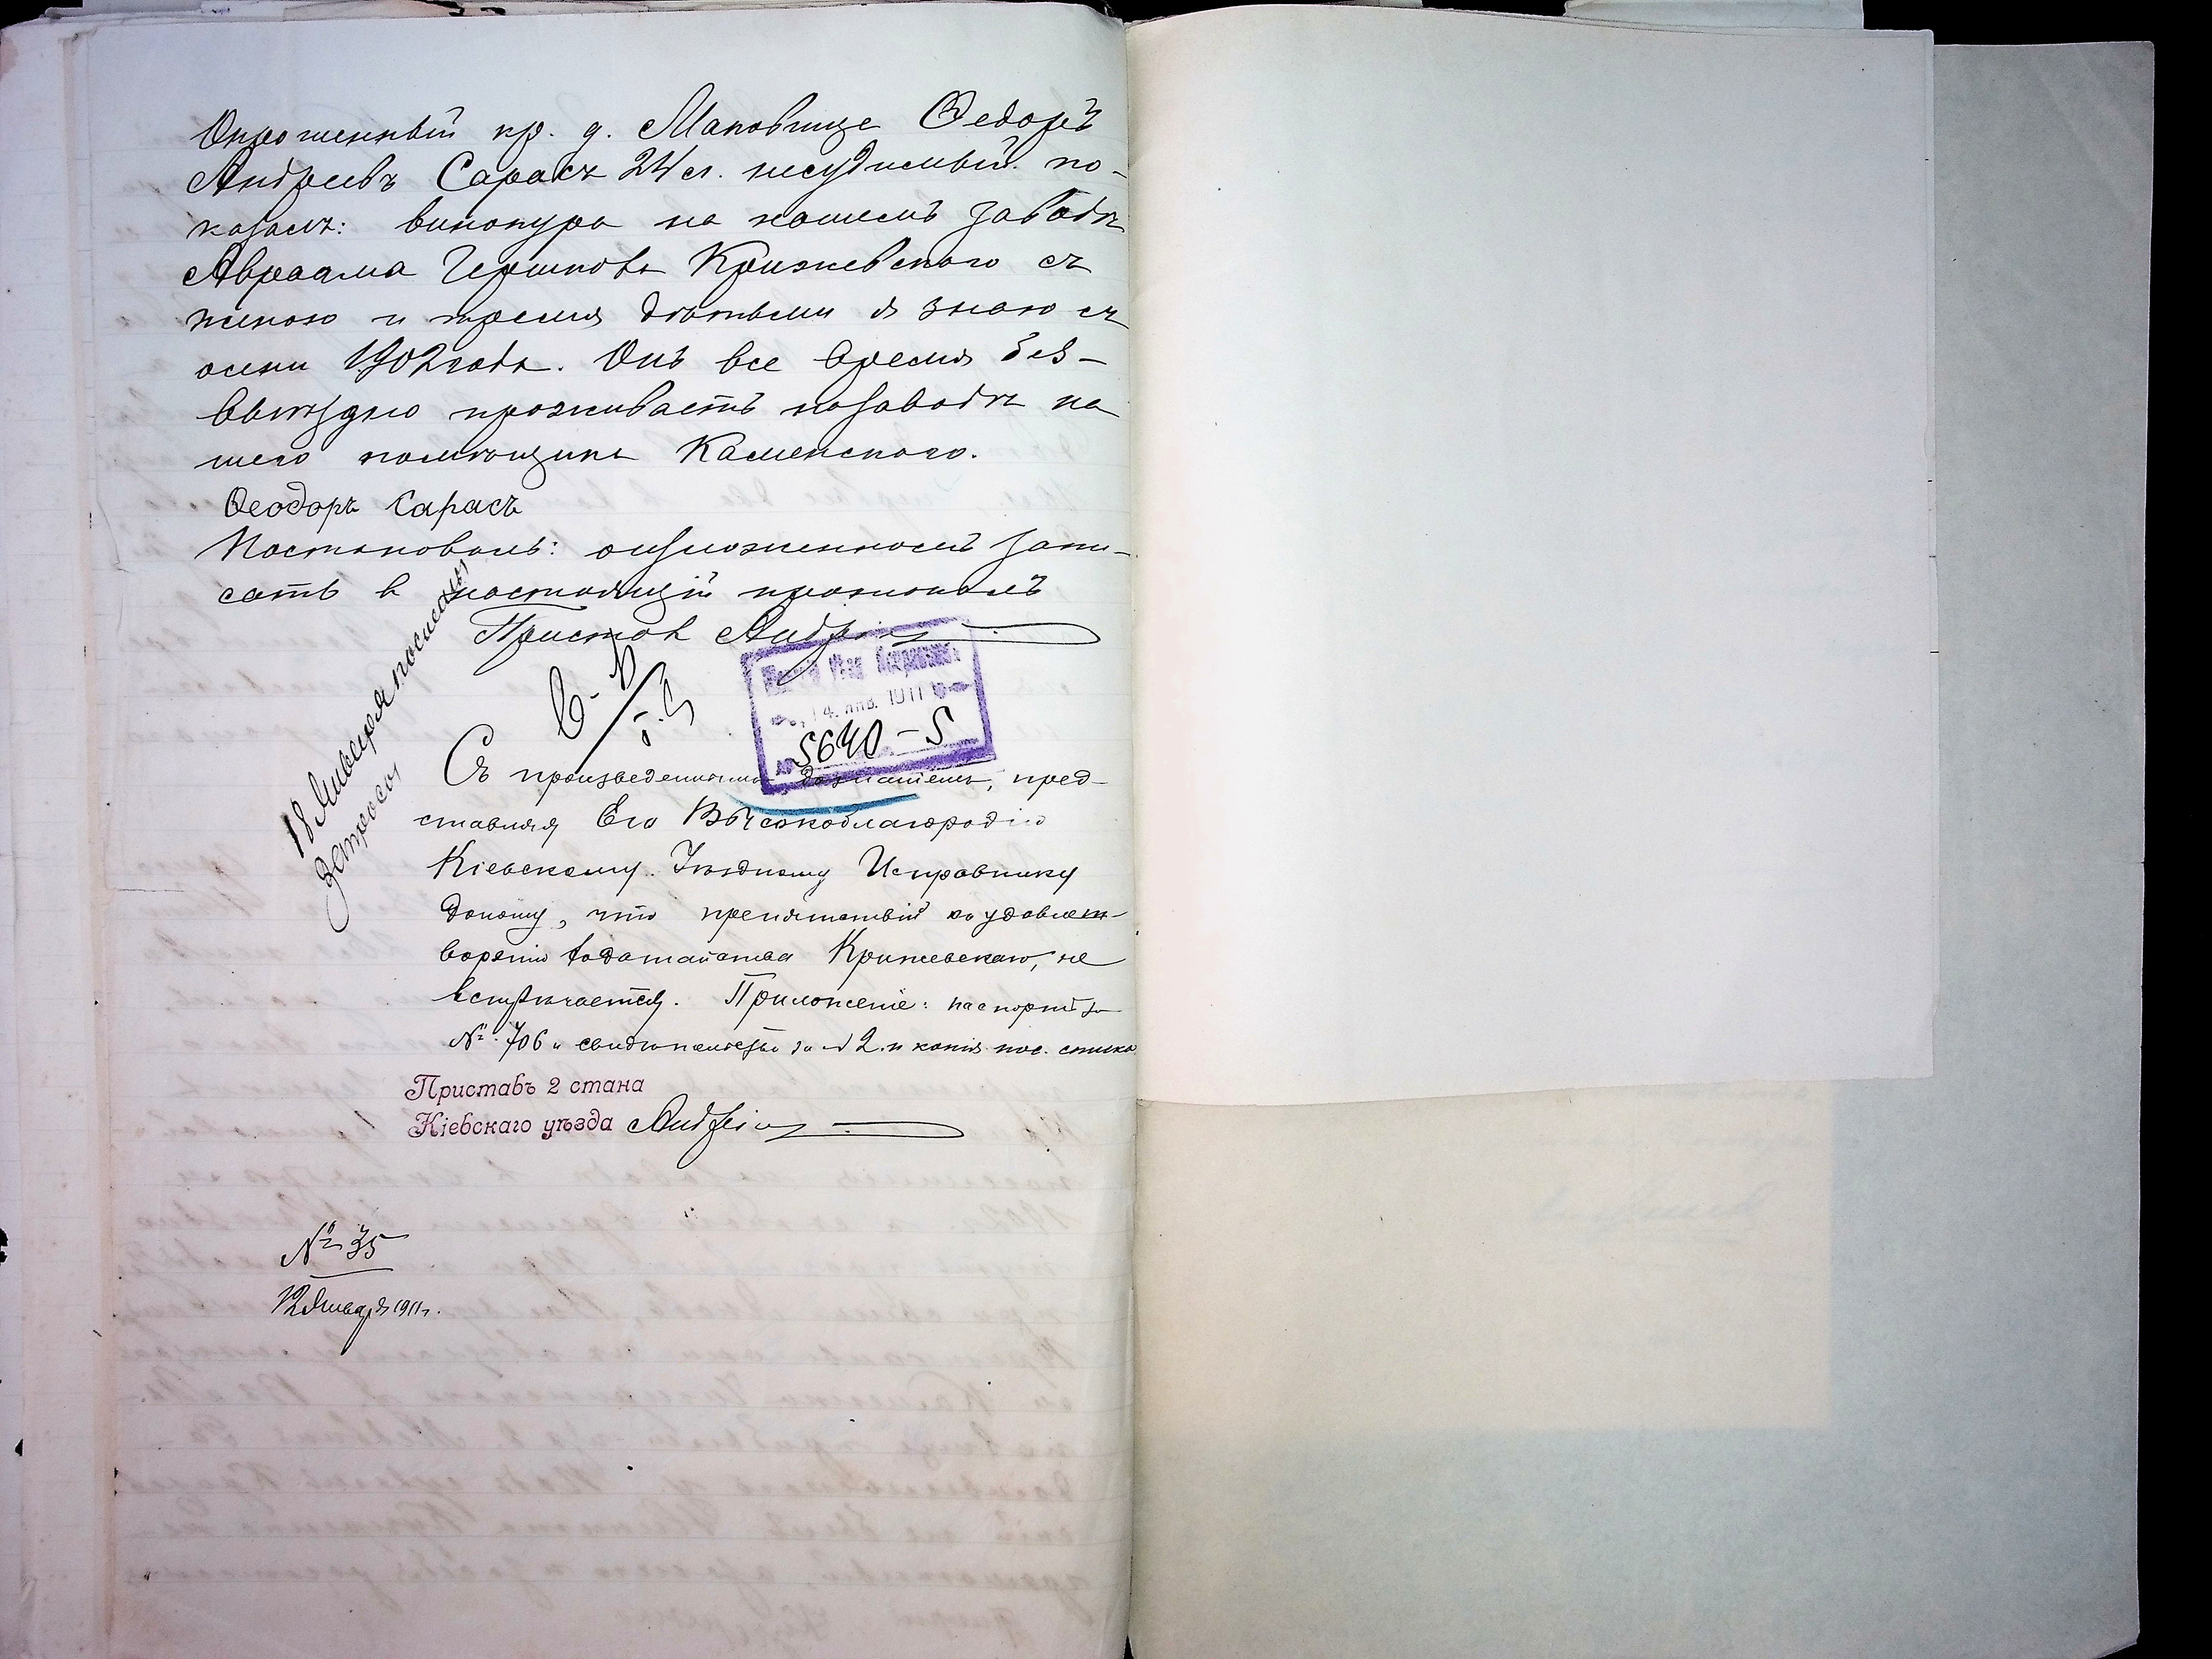 Опрошенный кр. д. Маковище Ѳедоръ
Андреевъ Сарасъ 24 л. несудимый. по-
казалъ: винокура на нашемъ заводѣ
Авраама Гершкова Крижевского съ
женою и тремя дѣтьми я знаю съ
осени 1902 года. Онъ все время без-
выѣздно проживаетъ на заводѣ на
шего помѣщика Каменского.
Ѳеодоръ Сарасъ
Постановилъ: о изложенномъ запи-
сать в настоящій протоколъ
Пристав
18 Января послано
запросъ
14. янв. 1911
5640-5
Съ произведеннымъ дознаніемъ, пред-
ставляя Его Высокоблагородію
Кіевскому Уѣздному Исправнику
доношу, что препятствій къ удовлет-
воренію ходатайства Крижевскаго, не
встрѣчается. Приложеніе: паспортъ за
№ 706 и свидѣтельство за № 2 и копія пос. списка
Приставъ 2 стана
Кіевскаго уѣзда
№ 35
12 Января 1911 г.